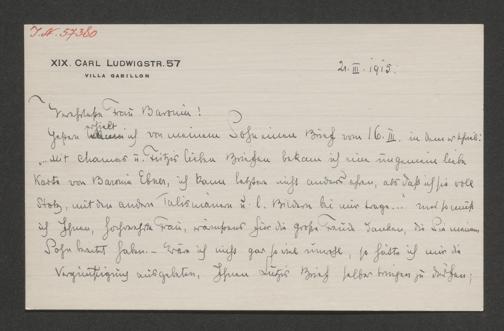 J.N. 57380
XIX. CARL LUDWIGSTR. 57
VILLA GABILLON
21. III. 1915.
Verehrteste Frau Baronin!
Gestern erhielt ich von meinem Sohn einen Brief vom 16. III. in dem er schrieb:
„Mit Mamas u. Fritzis lieben Briefen bekam ich eine ungemein liebe
Karte von Baronin Ebner, ich kann letztere nicht anders ehren, als daß ich sie voll
Stolz, mit den andern Talismanen u. l. Bildern bei mir trage..." und so muß
ich Ihnen, hochverehrte Frau, wärmstens für die große Freude danken, die Sie meinem
Sohn bereitet haben. – Wäre ich nicht gar so viel unwohl, so hätte ich mir die
Vergünstigung ausgebeten, Ihnen Brief selber bringen zu dürfen;